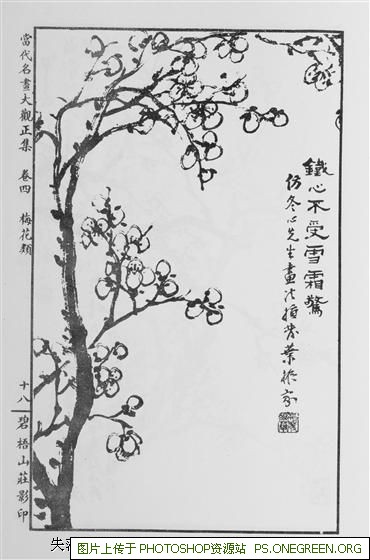 鐵心不受雪霜驚
仿冬心先生畫法
當代名畫大觀正集 卷四 梅花類
十八 碧梧山莊影印
图片上传于 PHOTOSHOP资源站 PS.ONEGREEN.ORG